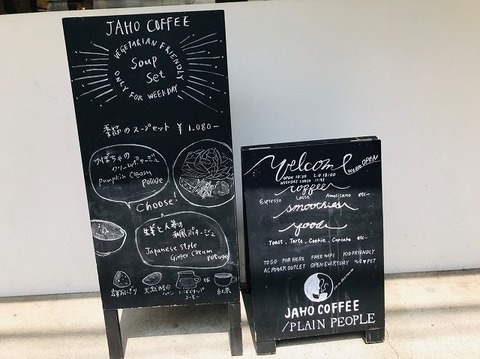 JAHO COFFEE
VEGETARIAN FRIENDLY
Soup
Set
ONLY FOR WEEKDAY
季節のスープセット ¥1.080-
かぼちゃの
クリームポタージュ
Pumpkin Cream
Potage
Choose!
生姜と人参の
和風ポタージュ
Japanese Style
Ginger Cream
Potage
Welcome
NOW OPEN
OPEN 10:30 L.O 18:00
coffee
Espresso Latte Americano etc-
smoothies
food
Toast, Tarte, Cookie, Cupcake etc-
TO GO FOR HERE FREE WIFI KID FRIENDLY
AC POWER OUTLET OPEN EVERYDAY WE ♥ PET
JAHO COFFEE
/PLAIN PEOPLE